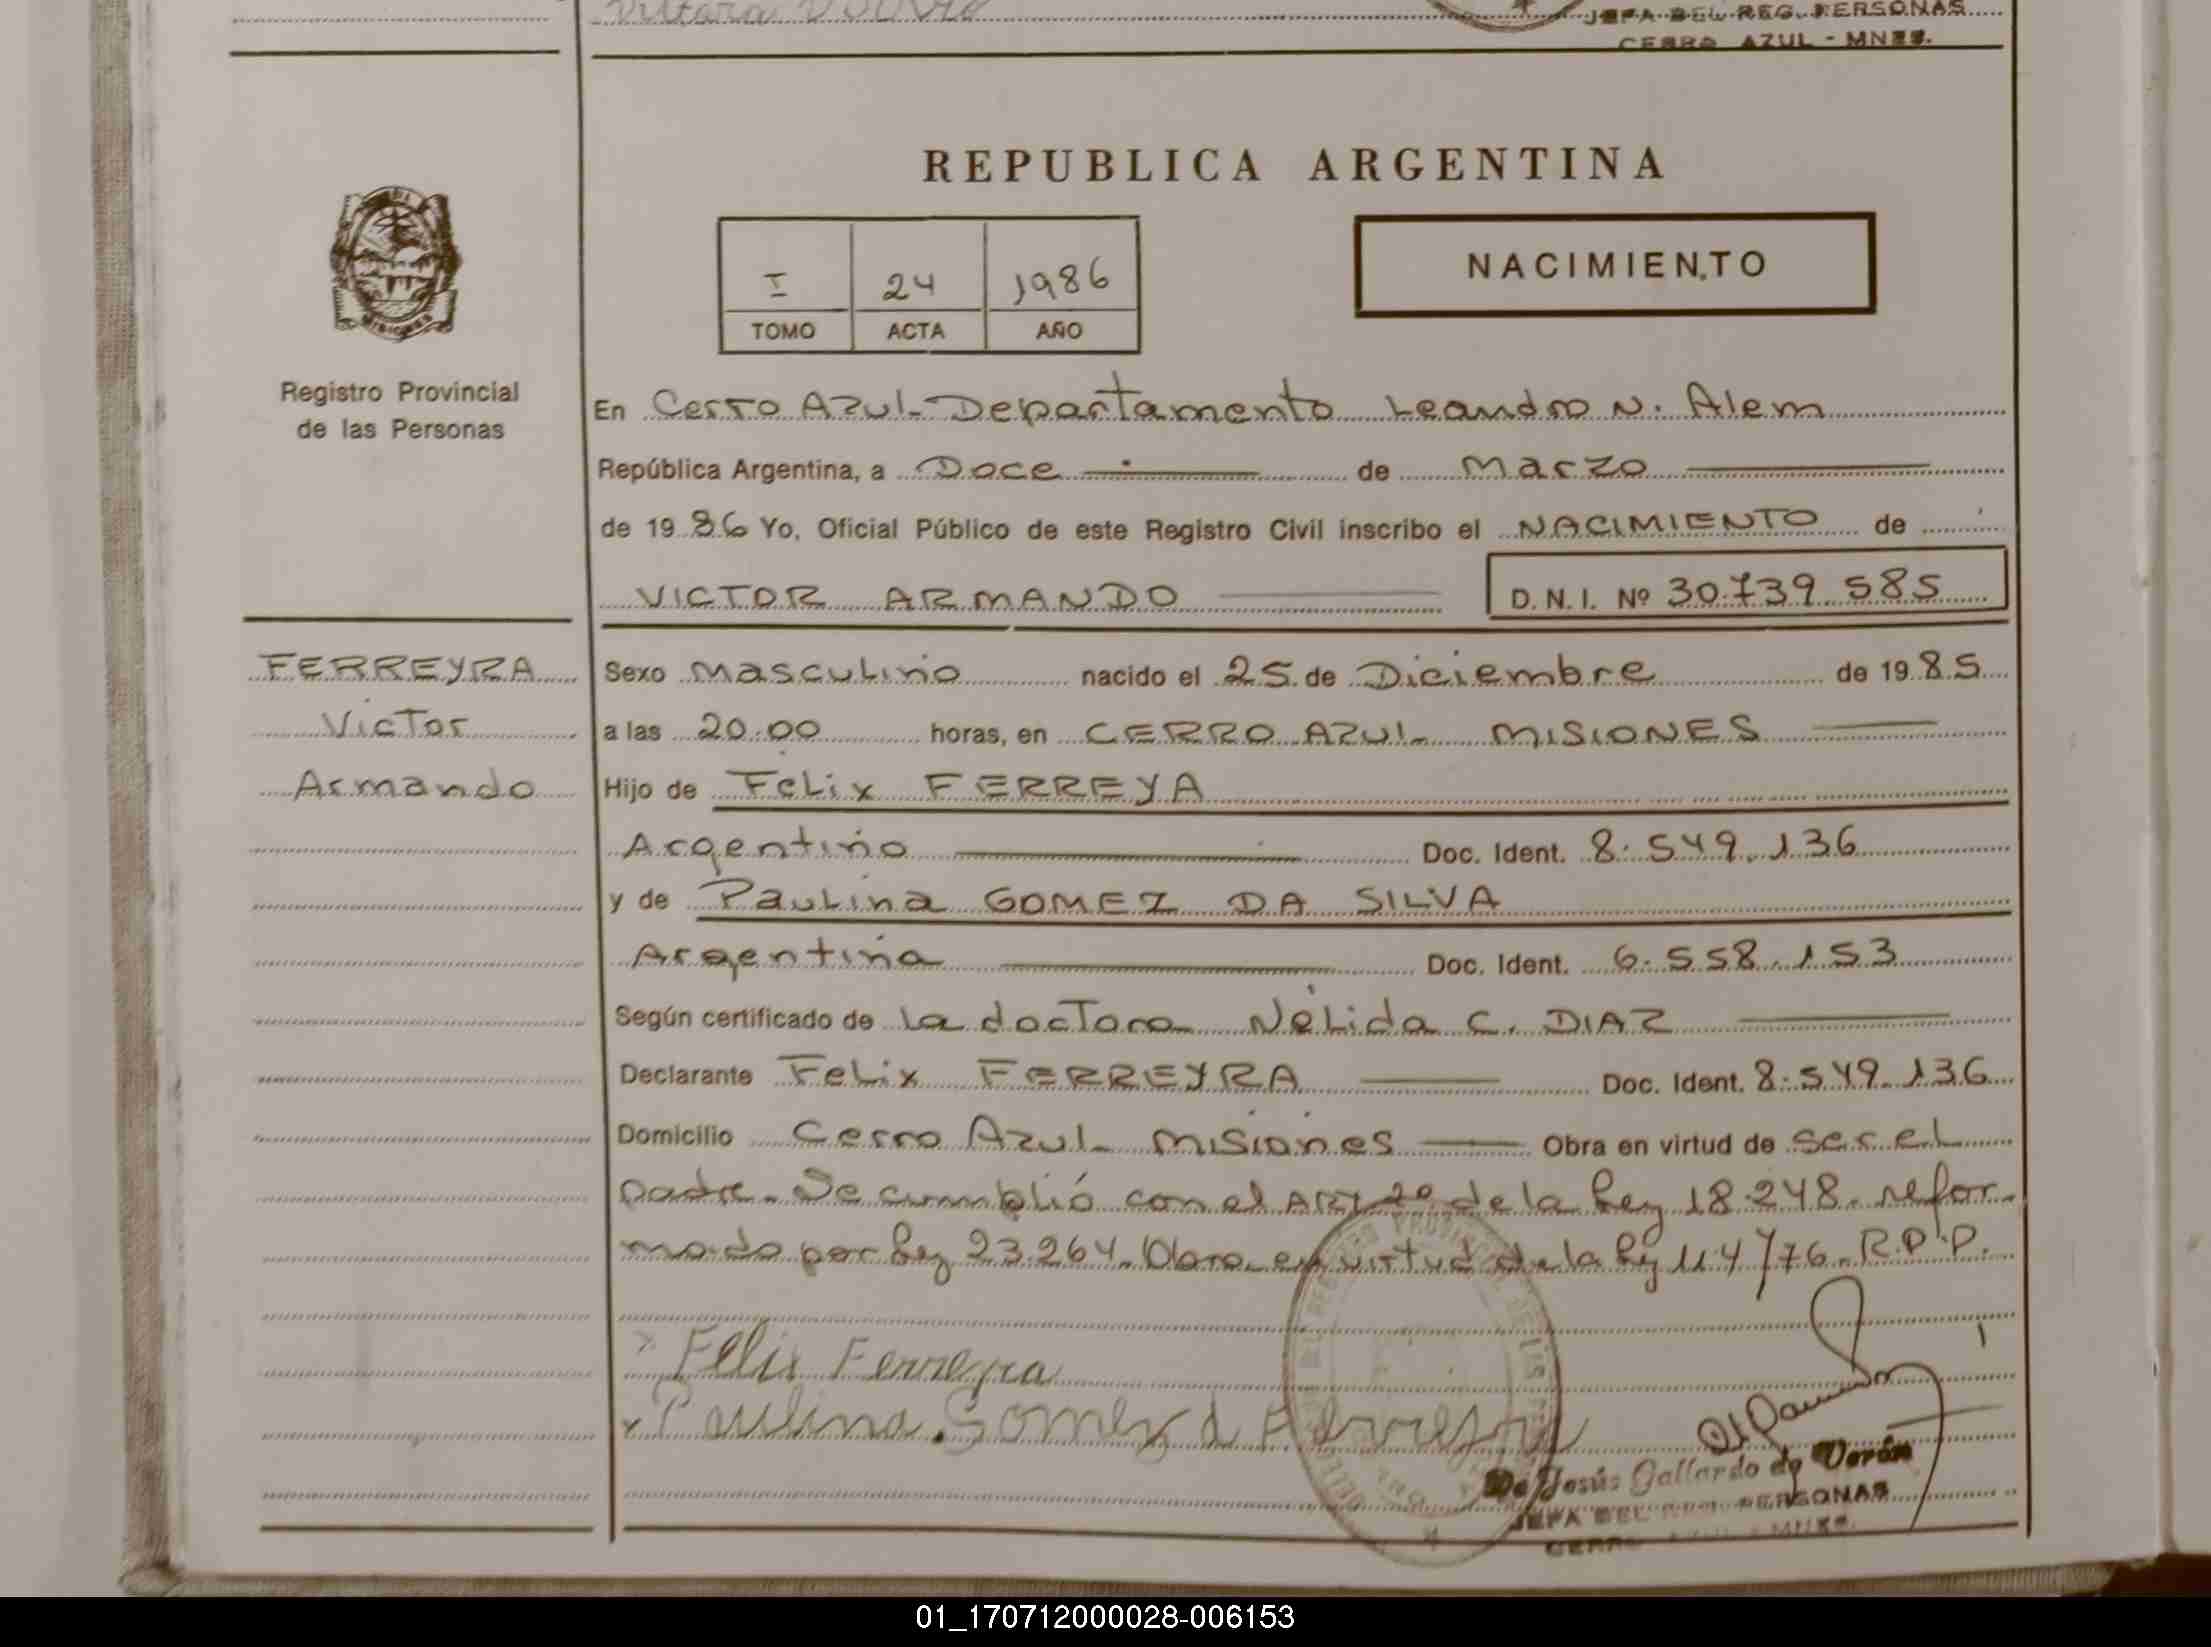 JEFA DEL REG. PERSONAS
CERRO AZUL - MNES.
REPUBLICA ARGENTINA
NACIMIENTO
I 24 1986
TOMO ACTA AÑO
MISIONES
Registro Provincial
de las Personas
En Cerro Azul Departamento Leandro N. Alem
República Argentina, a Doce de Marzo
de 1986 Yo, Oficial Público de este Registro Civil inscribo el NACIMIENTO de
VICTOR ARMANDO D.N.I. Nº 30.739.585
FERREYRA
Victor
Armando
Sexo Masculino nacido el 25 de Diciembre de 1985
a las 20.00 horas, en CERRO AZUL MISIONES
Hijo de Felix FERREYA
Argentino Doc. Ident. 8.549.136
y de Paulina GOMEZ DA SILVA
Argentina Doc. Ident. 6.558.153
Según certificado de la doctora Nélida C. DIAZ
Declarante Felix FERREYRA Doc. Ident. 8.549.136
Domicilio Cerro Azul Misiones Obra en virtud de ser el
padre. Se cumplió con el ART 2º de la Ley 18.248. refor-
mado por Ley 23.264. Obra en virtud de la Ley 114/76. R.P.P.
Felix Ferreyra
Paulina Gomez d Ferreyra
Jesús Gallardo de Verón
JEFA DEL REG. PERSONAS
CERRO AZUL - MNES.
01_170712000028-006153